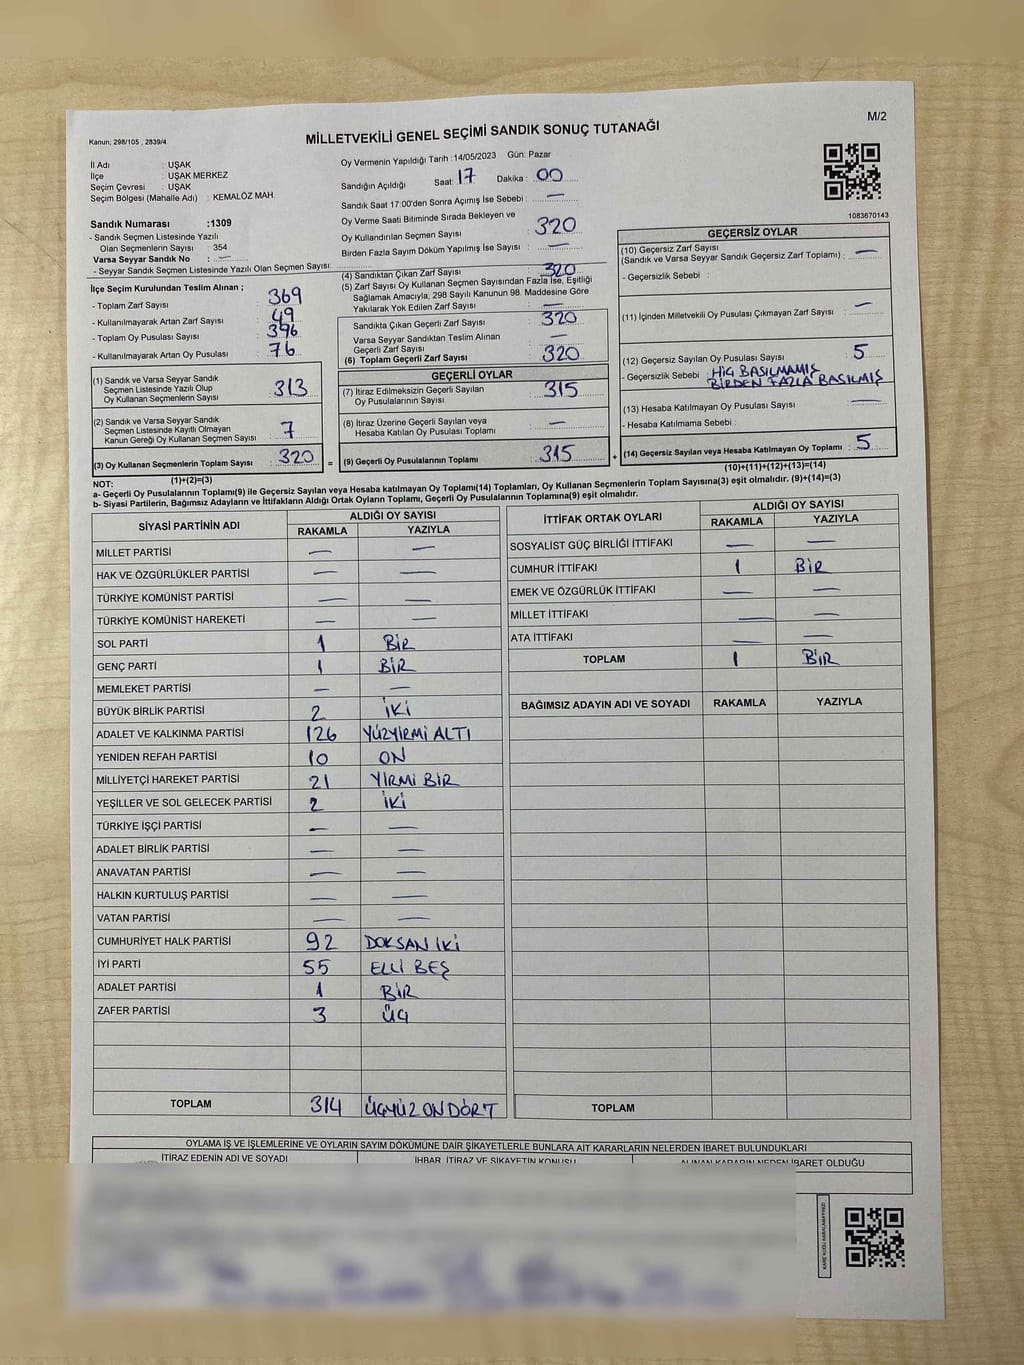 M/2
Kanun; 298/105 , 2839/4
MİLLETVEKİLİ GENEL SEÇİMİ SANDIK SONUÇ TUTANAĞI
İl Adı : UŞAK
İlçe : UŞAK MERKEZ
Seçim Çevresi : UŞAK
Seçim Bölgesi (Mahalle Adı) : KEMALÖZ MAH.
Sandık Numarası :1309
- Sandık Seçmen Listesinde Yazılı
Olan Seçmenlerin Sayısı : 354
Varsa Seyyar Sandık No : —
- Seyyar Sandık Seçmen Listesinde Yazılı Olan Seçmen Sayısı:
İlçe Seçim Kurulundan Teslim Alınan ;
- Toplam Zarf Sayısı : 369
- Kullanılmayarak Artan Zarf Sayısı : 49
- Toplam Oy Pusulası Sayısı : 396
- Kullanılmayarak Artan Oy Pusulası : 76
(1) Sandık ve Varsa Seyyar Sandık
Seçmen Listesinde Yazılı Olup
Oy Kullanan Seçmenlerin Sayısı : 313
(2) Sandık ve Varsa Seyyar Sandık
Seçmen Listesinde Kayıtlı Olmayan
Kanun Gereği Oy Kullanan Seçmen Sayısı : 7
(3) Oy Kullanan Seçmenlerin Toplam Sayısı : 320
(1)+(2)=(3)
Oy Vermenin Yapıldığı Tarih : 14/05/2023 Gün: Pazar
Sandığın Açıldığı Saat: 17 Dakika : 00
Sandık Saat 17:00'den Sonra Açımış İse Sebebi : —
Oy Verme Saati Bitiminde Sırada Bekleyen ve
Oy Kullandırılan Seçmen Sayısı : 320
Birden Fazla Sayım Döküm Yapılmış İse Sayısı : —
(4) Sandıktan Çıkan Zarf Sayısı : 320
(5) Zarf Sayısı Oy Kullanan Seçmen Sayısından Fazla İse, Eşitliği
Sağlamak Amacıyla; 298 Sayılı Kanunun 98. Maddesine Göre
Yakılarak Yok Edilen Zarf Sayısı : —
Sandıkta Çıkan Geçerli Zarf Sayısı : 320
Varsa Seyyar Sandıktan Teslim Alınan
Geçerli Zarf Sayısı : —
(6) Toplam Geçerli Zarf Sayısı : 320
GEÇERLİ OYLAR
(7) İtiraz Edilmeksizin Geçerli Sayılan
Oy Pusulalarının Sayısı : 315
(8) İtiraz Üzerine Geçerli Sayılan veya
Hesaba Katılan Oy Pusulası Toplamı : —
= (9) Geçerli Oy Pusulalarının Toplamı : 315 +
1083670143
GEÇERSİZ OYLAR
(10) Geçersiz Zarf Sayısı
(Sandık ve Varsa Seyyar Sandık Geçersiz Zarf Toplamı) : —
- Geçersizlik Sebebi :
(11) İçinden Milletvekili Oy Pusulası Çıkmayan Zarf Sayısı : —
(12) Geçersiz Sayılan Oy Pusulası Sayısı : 5
- Geçersizlik Sebebi : HİÇ BASILMAMIŞ
BİRDEN FAZLA BASILMIŞ
(13) Hesaba Katılmayan Oy Pusulası Sayısı : —
- Hesaba Katılmama Sebebi :
(14) Geçersiz Sayılan veya Hesaba Katılmayan Oy Toplamı : 5
(10)+(11)+(12)+(13)=(14)
NOT:
a- Geçerli Oy Pusulalarının Toplamı(9) ile Geçersiz Sayılan veya Hesaba katılmayan Oy Toplamı(14) Toplamları, Oy Kullanan Seçmenlerin Toplam Sayısına(3) eşit olmalıdır. (9)+(14)=(3)
b- Siyasi Partilerin, Bağımsız Adayların ve İttifakların Aldığı Ortak Oyların Toplamı, Geçerli Oy Pusulalarının Toplamına(9) eşit olmalıdır.
SİYASİ PARTİNİN ADI ALDIĞI OY SAYISI
RAKAMLA YAZIYLA
MİLLET PARTİSİ — —
HAK VE ÖZGÜRLÜKLER PARTİSİ — —
TÜRKİYE KOMÜNİST PARTİSİ — —
TÜRKİYE KOMÜNİST HAREKETİ — —
SOL PARTİ 1 BİR
GENÇ PARTİ 1 BİR
MEMLEKET PARTİSİ — —
BÜYÜK BİRLİK PARTİSİ 2 İKİ
ADALET VE KALKINMA PARTİSİ 126 YÜZYİRMİ ALTI
YENİDEN REFAH PARTİSİ 10 ON
MİLLİYETÇİ HAREKET PARTİSİ 21 YİRMİ BİR
YEŞİLLER VE SOL GELECEK PARTİSİ 2 İKİ
TÜRKİYE İŞÇİ PARTİSİ — —
ADALET BİRLİK PARTİSİ — —
ANAVATAN PARTİSİ — —
HALKIN KURTULUŞ PARTİSİ — —
VATAN PARTİSİ — —
CUMHURİYET HALK PARTİSİ 92 DOKSAN İKİ
İYİ PARTİ 55 ELLİ BEŞ
ADALET PARTİSİ 1 BİR
ZAFER PARTİSİ 3 ÜÇ
TOPLAM 314 ÜÇYÜZ ONDÖRT
İTTİFAK ORTAK OYLARI ALDIĞI OY SAYISI
RAKAMLA YAZIYLA
SOSYALİST GÜÇ BİRLİĞİ İTTİFAKI — —
CUMHUR İTTİFAKI 1 BİR
EMEK VE ÖZGÜRLÜK İTTİFAKI — —
MİLLET İTTİFAKI — —
ATA İTTİFAKI — —
TOPLAM 1 BİR
BAĞIMSIZ ADAYIN ADI VE SOYADI RAKAMLA YAZIYLA
TOPLAM
OYLAMA İŞ VE İŞLEMLERİNE VE OYLARIN SAYIM DÖKÜMÜNE DAİR ŞİKAYETLERLE BUNLARA AİT KARARLARIN NELERDEN İBARET BULUNDUKLARI
İTİRAZ EDENİN ADI VE SOYADI İHBAR, İTİRAZ VE ŞİKAYETİN KONUSU ALINAN KARARIN NEDEN İBARET OLDUĞU